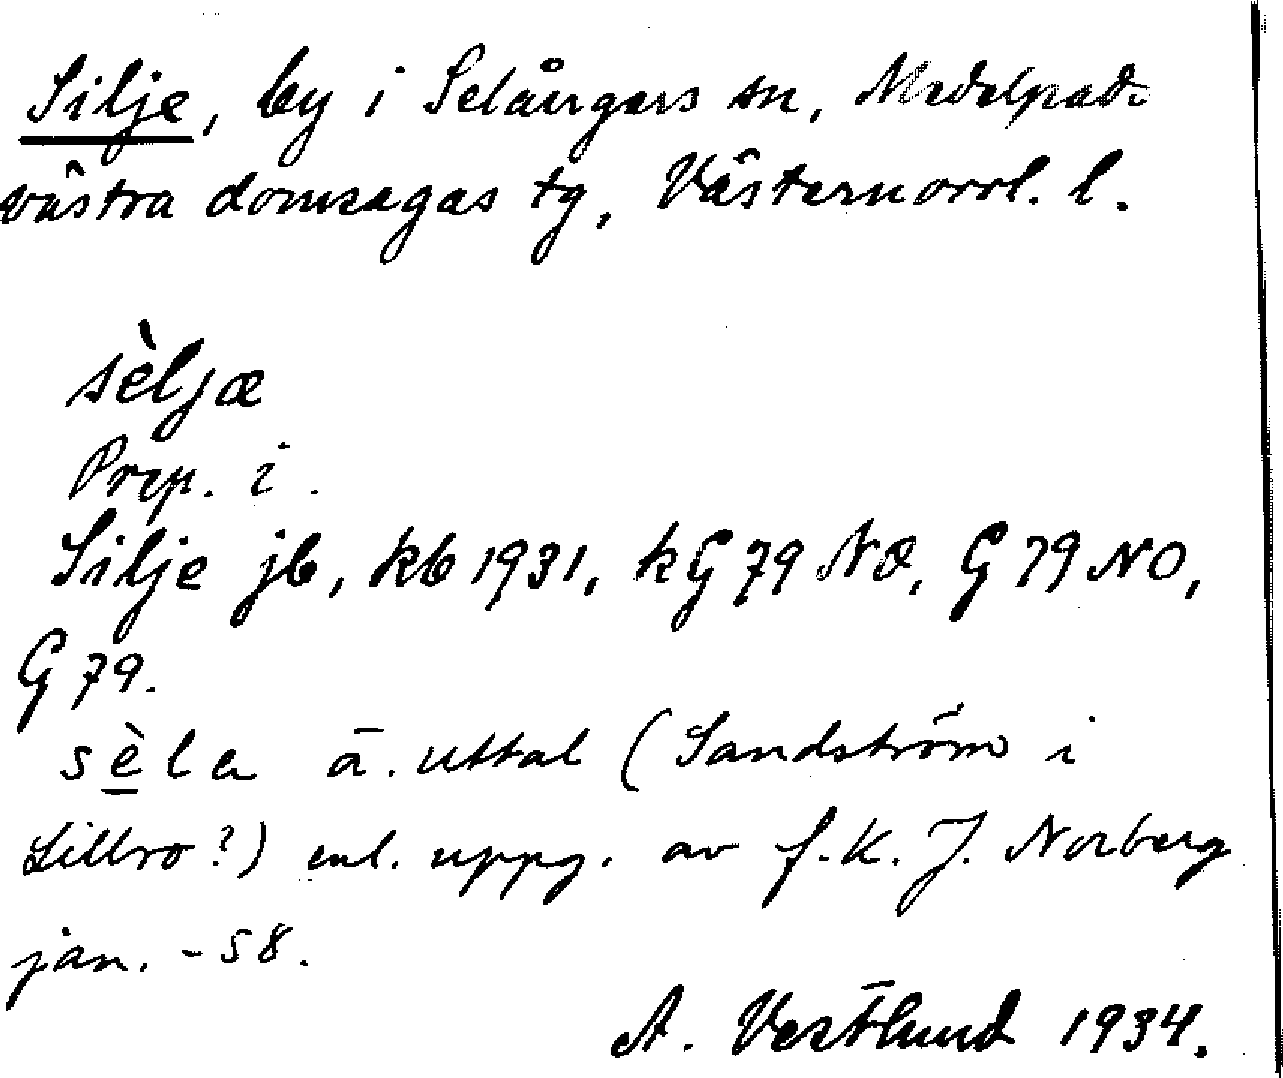 Silje, by i Selångers sn, Medelpads
västra domsagas tg, Västernorrl. l.
sèljæ
Prep. i.
Silje jb, kb 1931, kG 79 NO, G 79 NO,
G 79.
sèla ä. uttal (Sandström i
Lillbro?) enl. uppg. av f.k. J. Norberg
jan. -58.
A. Vestlund 1934.